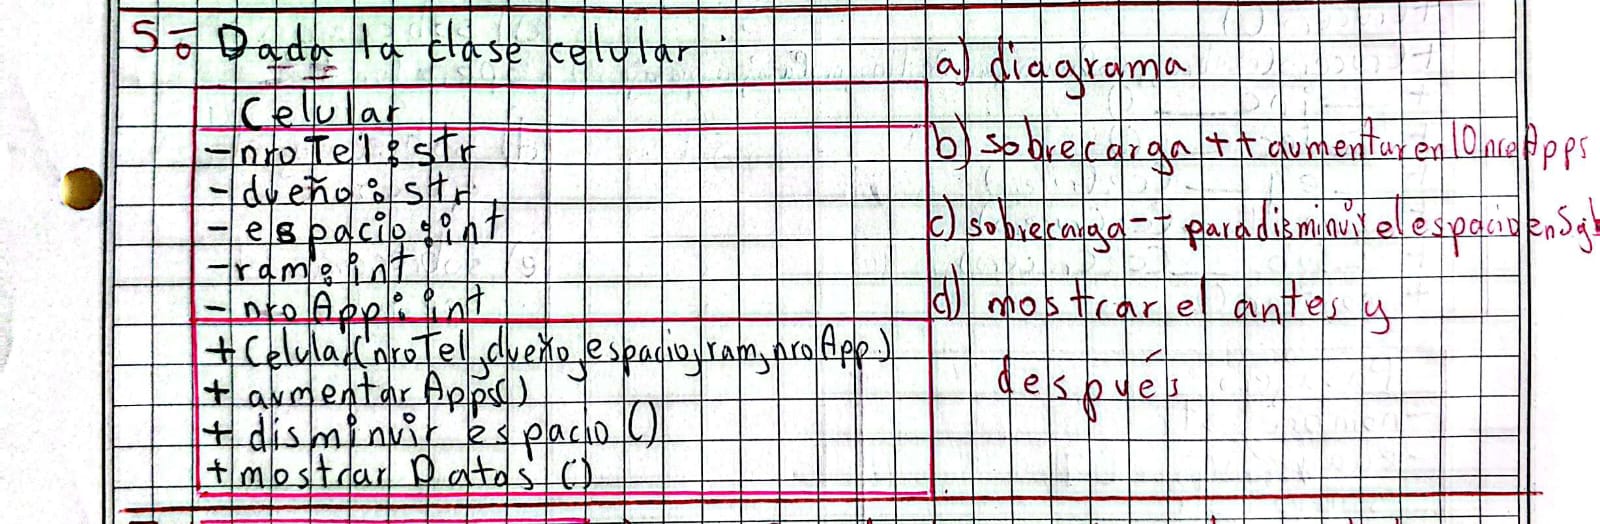 5º Dada la clase celular
Celular
- nroTel: str
- dueño: str
- espacio: int
- ram: int
- nroApp: int
+ Celular(nroTel, dueño, espacio, ram, nroApp)
+ aumentar Apps()
+ disminuir espacio ()
+ mostrar Datos ()
a) diagrama
b) sobrecarga ++ aumentar en 10 nroApps
c) sobrecarga -- para disminuir el espacio en 5gb
d) mostrar el antes y
después